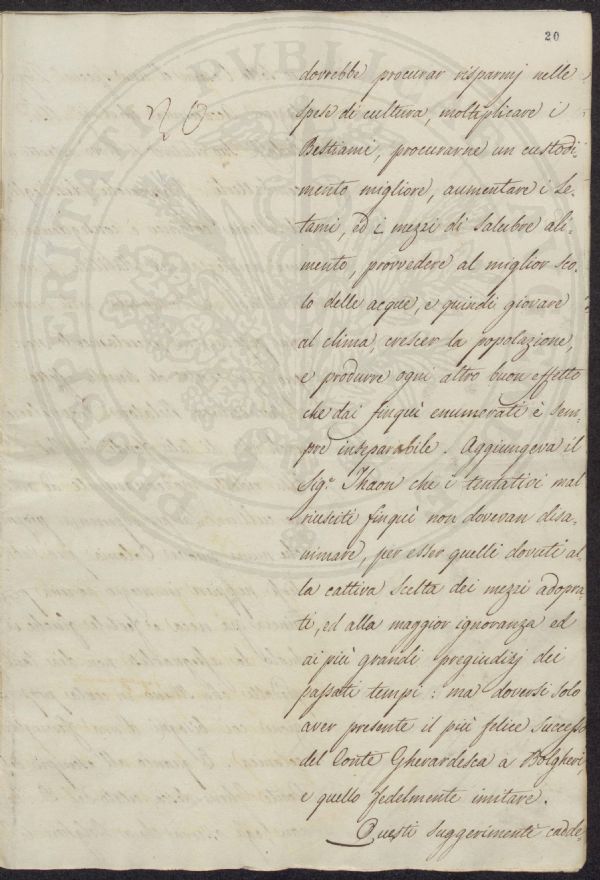 20
dovrebbe procurar risparmj nelle
spese di cultura, moltiplicare i
Bestiami, procurarne un custodi-
mento migliore, aumentare i Le-
tami, ed i mezzi di salubre ali-
mento, provvedere al miglior sco-
lo delle acque, e quindi giovare
al clima, crescer la popolazione,
e produrre ogni altro buon effetto
che dai finquì enumerati è sem-
pre inseparabile. Aggiungeva il
Sig.e Thaon che i tentativi mal
riusciti finquì non dovevan disa-
nimare, per esser quelli dovuti al-
la cattiva scelta dei mezzi adopra-
ti, ed alla maggior ignoranza ed
ai più grandi pregiudizj dei
passati tempi: ma doversi solo
aver presente il più felice successo
del Conte Gherardesca a Bolgheri,
e quello fedelmente imitare.
Questi suggerimenti cadde-